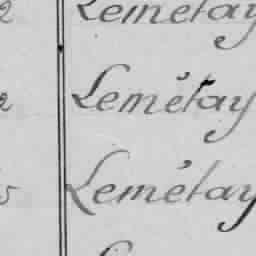 2 Lemétay
2 Lemétay
5 Lemétay